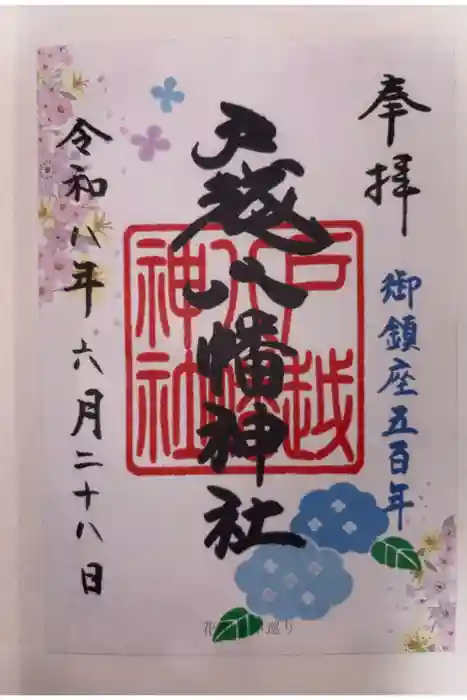 奉拝
御鎮座五百年
戸越八幡神社
戸越八幡神社
令和八年六月二十八日
巡り